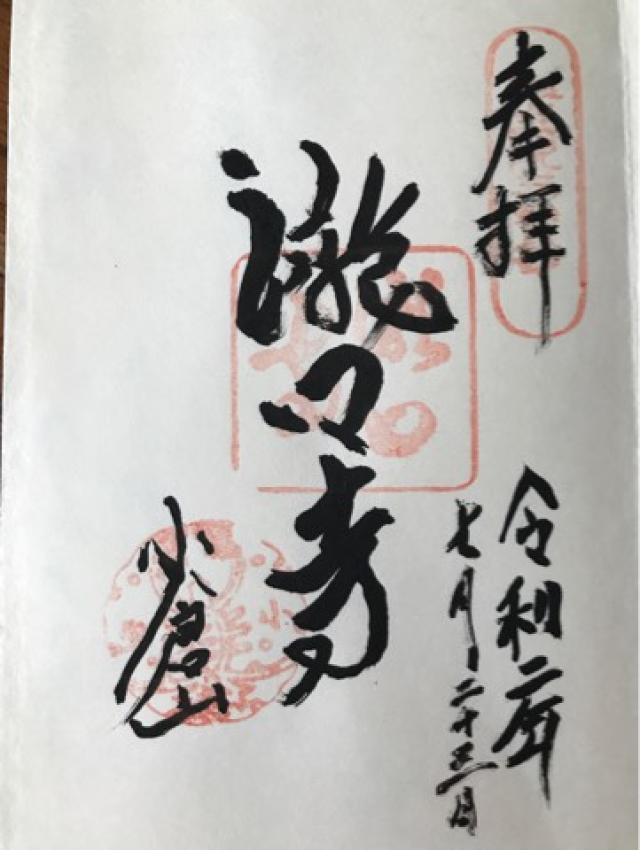 奉拝
令和二年
七月二十三日
瀧口寺
小倉山